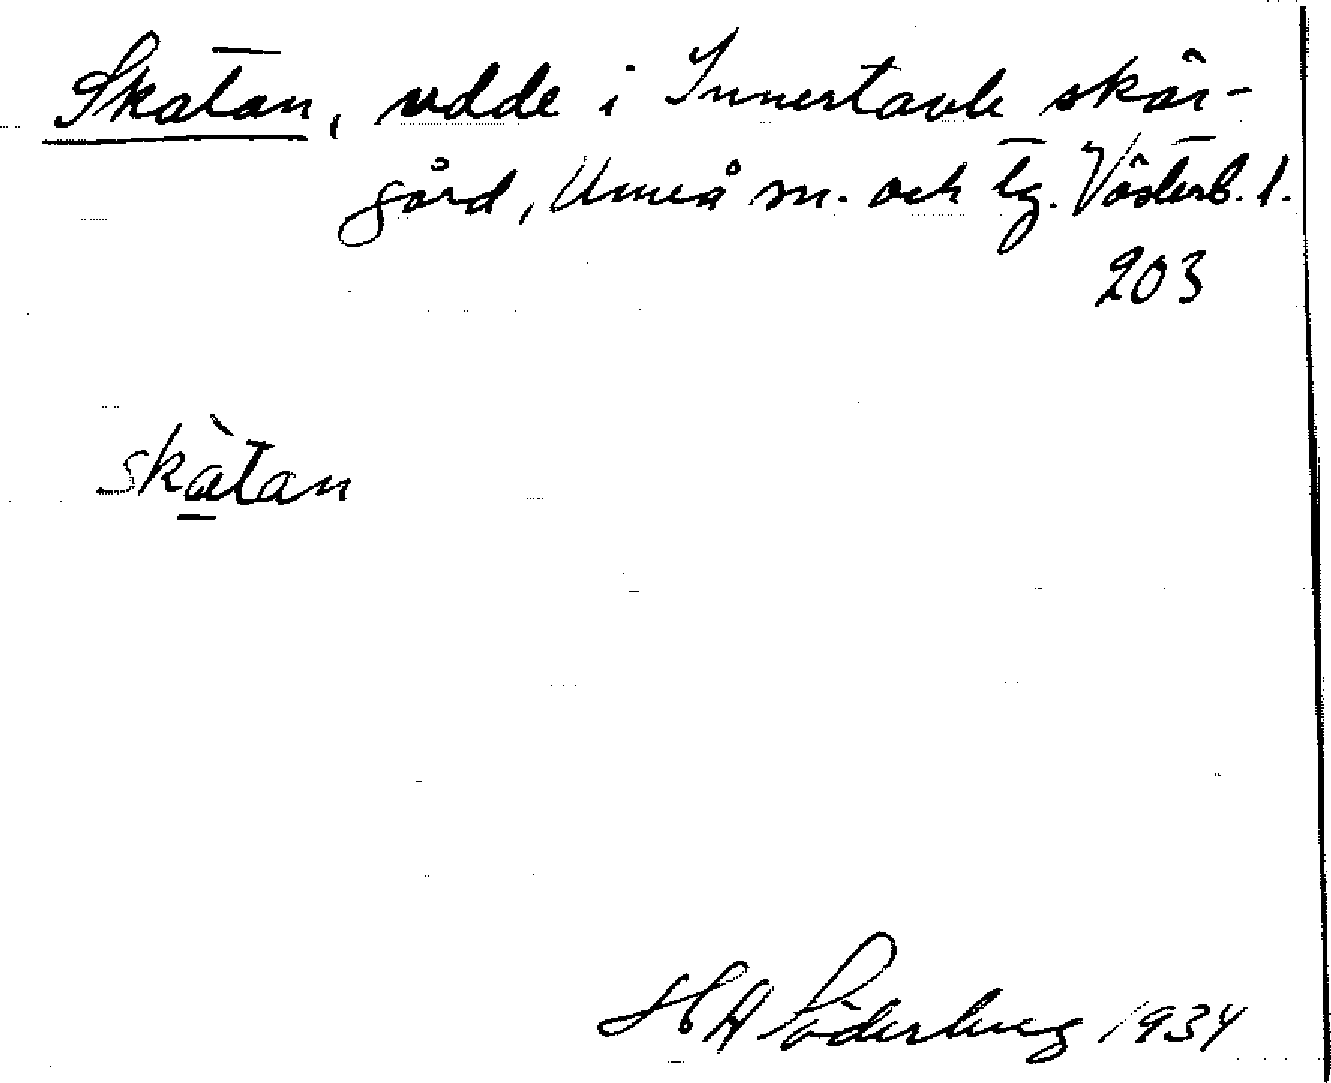 Skatan, udde i Innertavle skär-
gård, Umeå sn. och tg. Västerb. l.
203
skàtan
HA Söderberg 1934